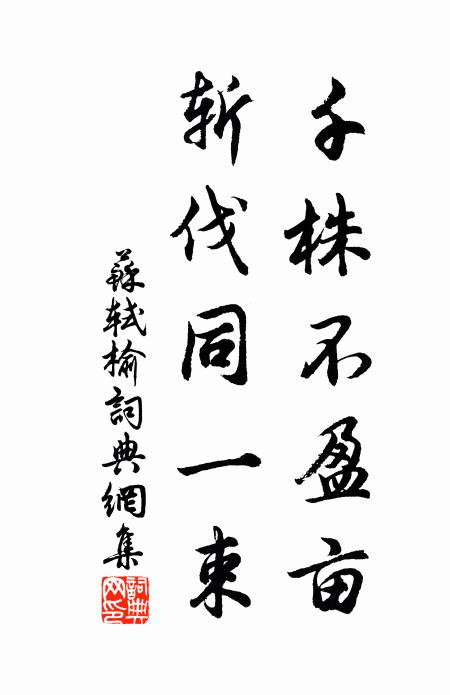 千株不盈亩
斩伐同一束
蘇轼榆詞典網集
詞典网印